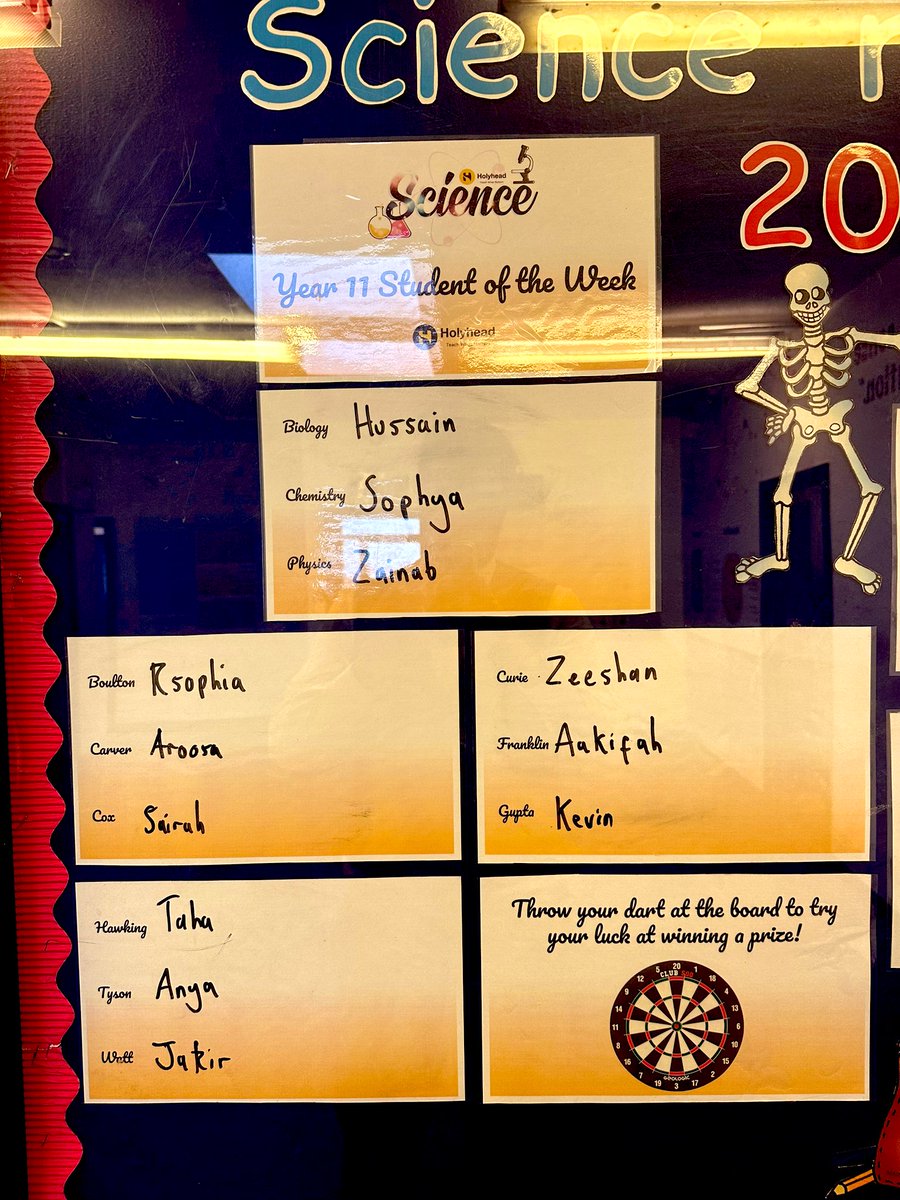 Science
20
Holyhead
Science
Year 11 Student of the Week
Holyhead
Biology Hussain
Chemistry Sophya
Physics Zainab
Boulton Rsophia
Carver Aroosa
Cox Sairah
Curie Zeeshan
Franklin Aakifah
Gupta Kevin
Hawking Taha
Tyson Anya
Watt Jakir
Throw your dart at the board to try
your luck at winning a prize!
CLUB 500
20 1 18 4 13 6 10 15 2 17 3 19 7 16 8 11 14 9 12 5
GEOLOGIC